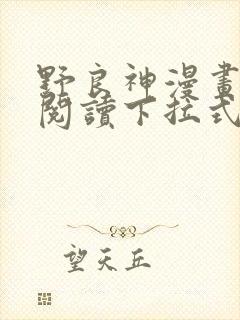 野良神漫畫
閱讀下拉式
望天丘